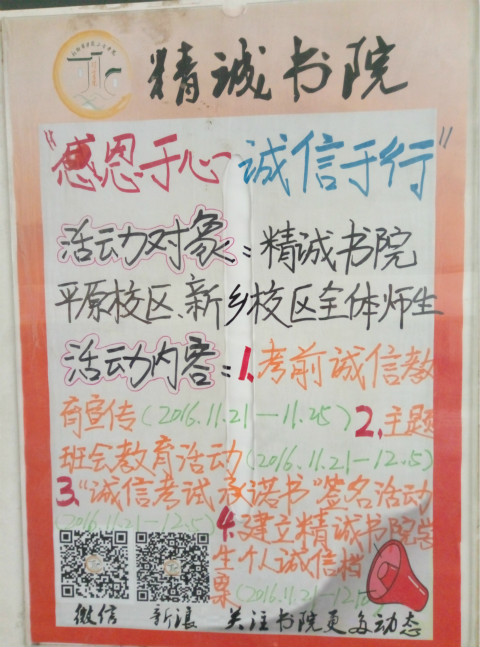 精诚书院
"感恩于心 诚信于行"
活动对象：精诚书院
平原校区、新乡校区全体师生
活动内容：1.考前诚信教
育宣传(2016.11.21—11.25) 2.主题
班会教育活动(2016.11.21—12.5)
3."诚信考试承诺书"签名活动
(2016.11.21—12.5) 4.建立精诚书院学
生个人诚信档
案(2016.11.21—12.
微信 新浪 关注书院更多动态